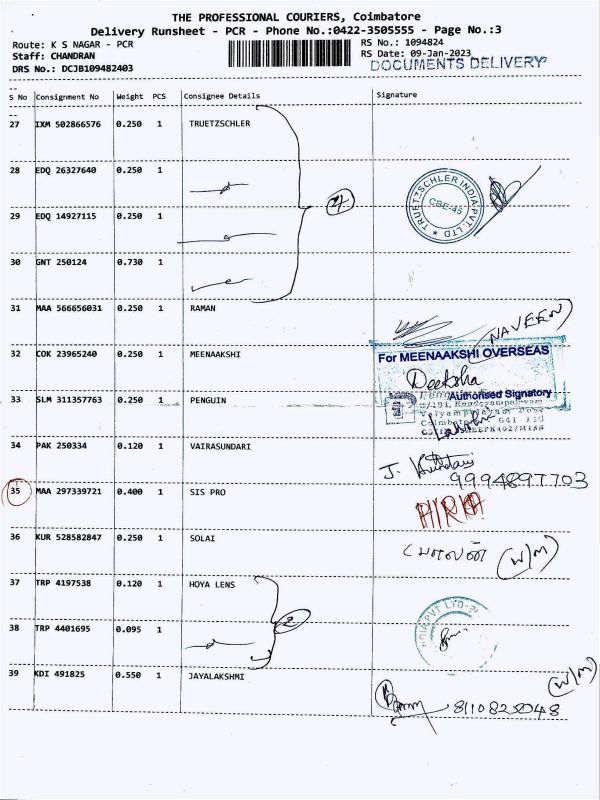 THE PROFESSIONAL COURIERS, Coimbatore
Delivery Runsheet - PCR - Phone No.:0422-3505555 - Page No.:3
Route: K S NAGAR - PCR
RS No.: 1094824
Staff: CHANDRAN
RS Date: 09-Jan-2023
DRS No.: DCJB109482403
DOCUMENTS DELIVERY
S No Consignment No Weight PCS Consignee Details Signature
27 IXM 502866576 0.250 1 TRUETZSCHLER
28 EDQ 26327640 0.250 1
TRUETZSCHLER INDIA PVT LTD
CBE-45
4
29 EDQ 14927115 0.250 1
30 GNT 250124 0.730 1
31 MAA 566656031 0.250 1 RAMAN
NAVEEN
32 COK 23965240 0.250 1 MEENAAKSHI
For MEENAAKSHI OVERSEAS
Deeksha
Authorised Signatory
33 SLM 311357763 0.250 1 PENGUIN
641 110
34 PAK 250334 0.120 1 VAIRASUNDARI
9994897703
35 MAA 297339721 0.400 1 SIS PRO
36 KUR 528582847 0.250 1 SOLAI
(W/M)
37 TRP 4197538 0.120 1 HOYA LENS
2
38 TRP 4401695 0.095 1
39 KDI 491825 0.550 1 JAYALAKSHMI
(W/M)
8110825048